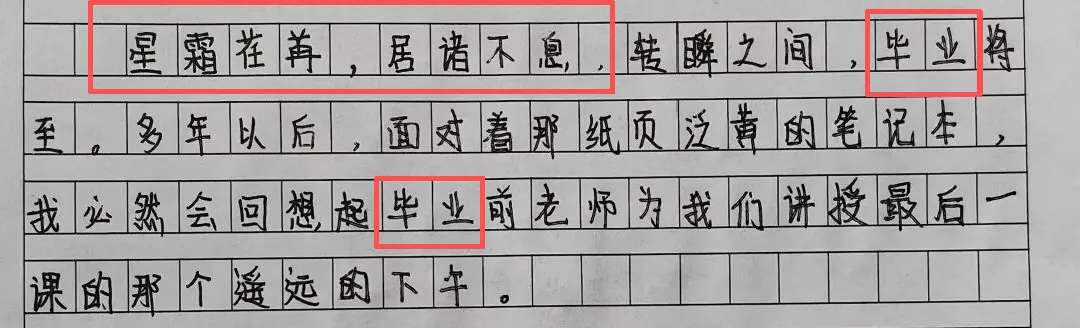 星霜荏苒，居诸不息，转瞬之间，毕业将
至。多年以后，面对着那纸页泛黄的笔记本，
我必然会回想起毕业前老师为我们讲授最后一
课的那个遥远的下午。